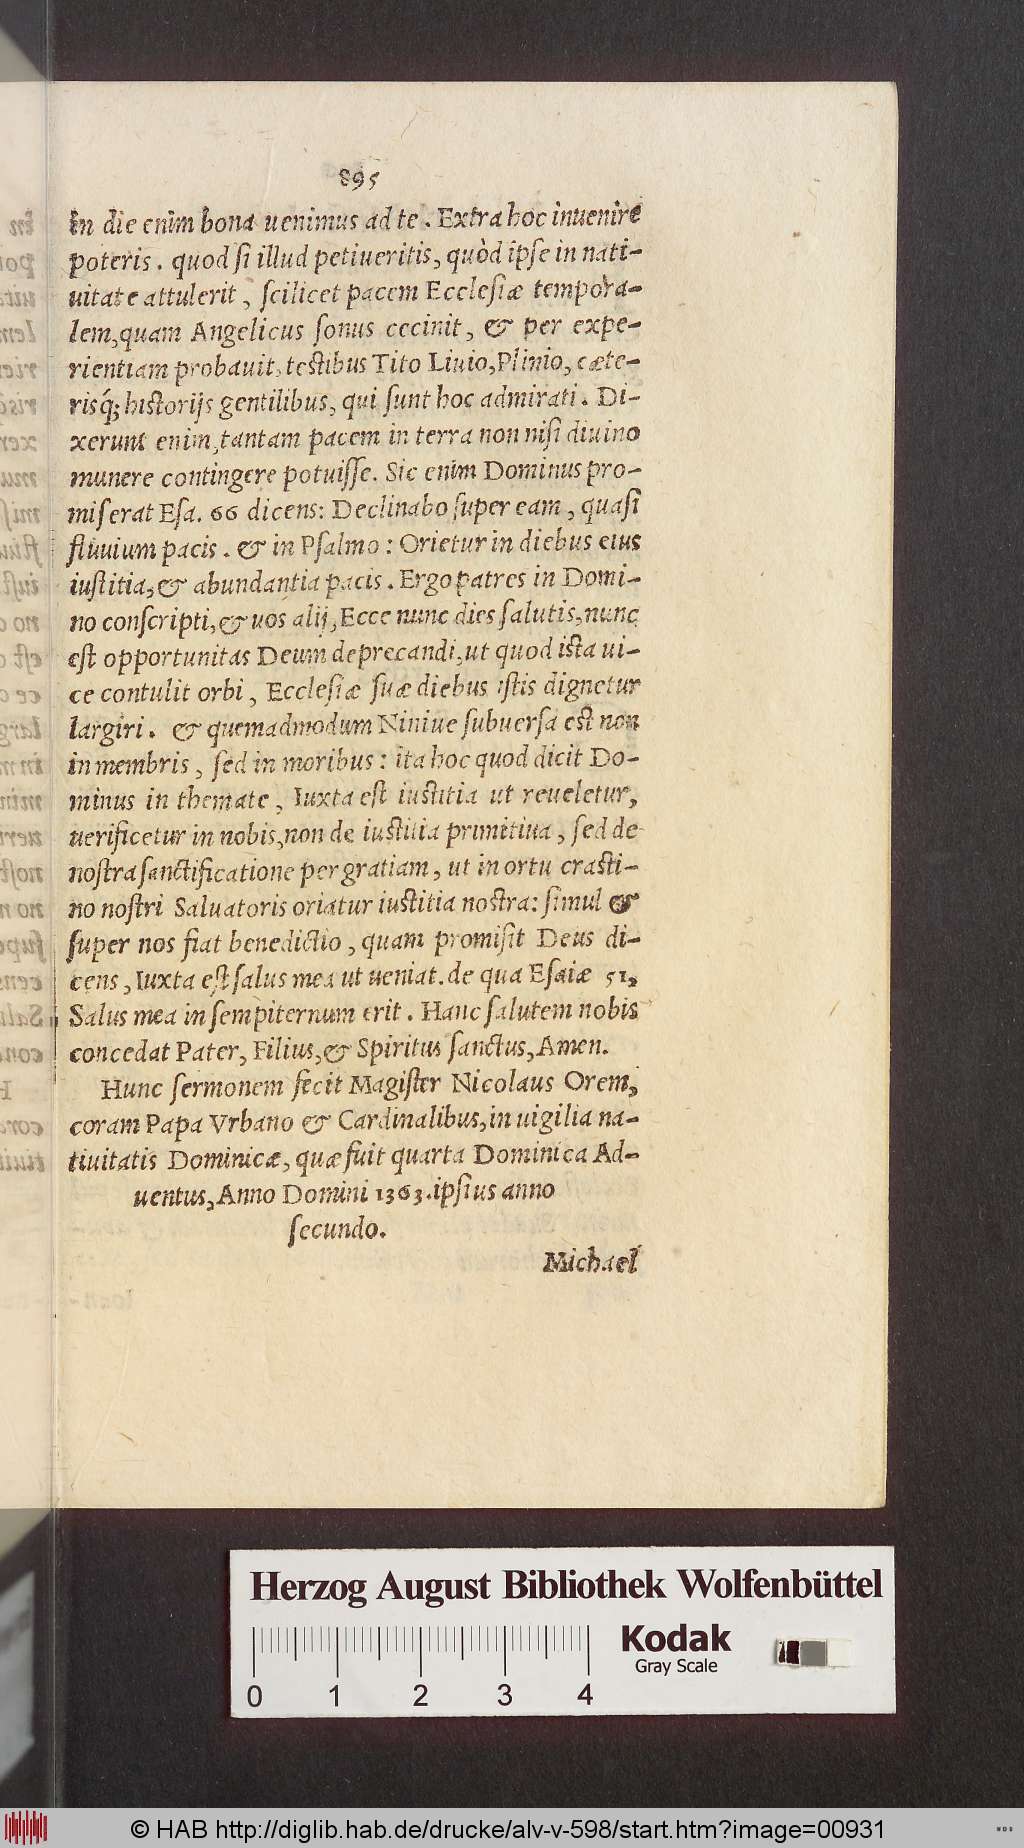 895
In die enim bona uenimus ad te. Extra hoc inuenire
poteris. quod si illud petiueritis, quòd ipse in nati-
uitate attulerit, scilicet pacem Ecclesiæ tempora-
lem, quam Angelicus sonus cecinit, & per expe-
rientiam probauit, testibus Tito Liuio, Plinio, cæte-
risq́; historijs gentilibus, qui sunt hoc admirati. Di-
xerunt enim, tantam pacem in terra non nisi diuino
munere contingere potuisse. Sic enim Dominus pro-
miserat Esa. 66 dicens: Declinabo super eam, quasi
fluuium pacis. & in Psalmo: Orietur in diebus eius
iustitia, & abundantia pacis. Ergo patres in Domi-
no conscripti, & uos alij, Ecce nunc dies salutis, nunc
est opportunitas Deum deprecandi, ut quod ista ui-
ce contulit orbi, Ecclesiæ suæ diebus istis dignetur
largiri. & quemadmodum Niniue subuersa est non
in membris, sed in moribus: ita hoc quod dicit Do-
minus in themate, Iuxta est iustitia ut reueletur,
uerificetur in nobis, non de iustitia primitiua, sed de
nostra sanctificatione per gratiam, ut in ortu crasti-
no nostri Saluatoris oriatur iustitia nostra: simul &
super nos fiat benedictio, quam promisit Deus di-
cens, Iuxta est salus mea ut ueniat. de qua Esaiæ 51,
Salus mea in sempiternum erit. Hanc salutem nobis
concedat Pater, Filius, & Spiritus sanctus, Amen.
Hunc sermonem fecit Magister Nicolaus Orem,
coram Papa Vrbano & Cardinalibus, in uigilia na-
tiuitatis Dominicæ, quæ fuit quarta Dominica Ad-
uentus, Anno Domini 1363. ipsius anno
secundo.
Michael
Herzog August Bibliothek Wolfenbüttel
Kodak
Gray Scale
0 1 2 3 4
© HAB http://diglib.hab.de/drucke/alv-v-598/start.htm?image=00931